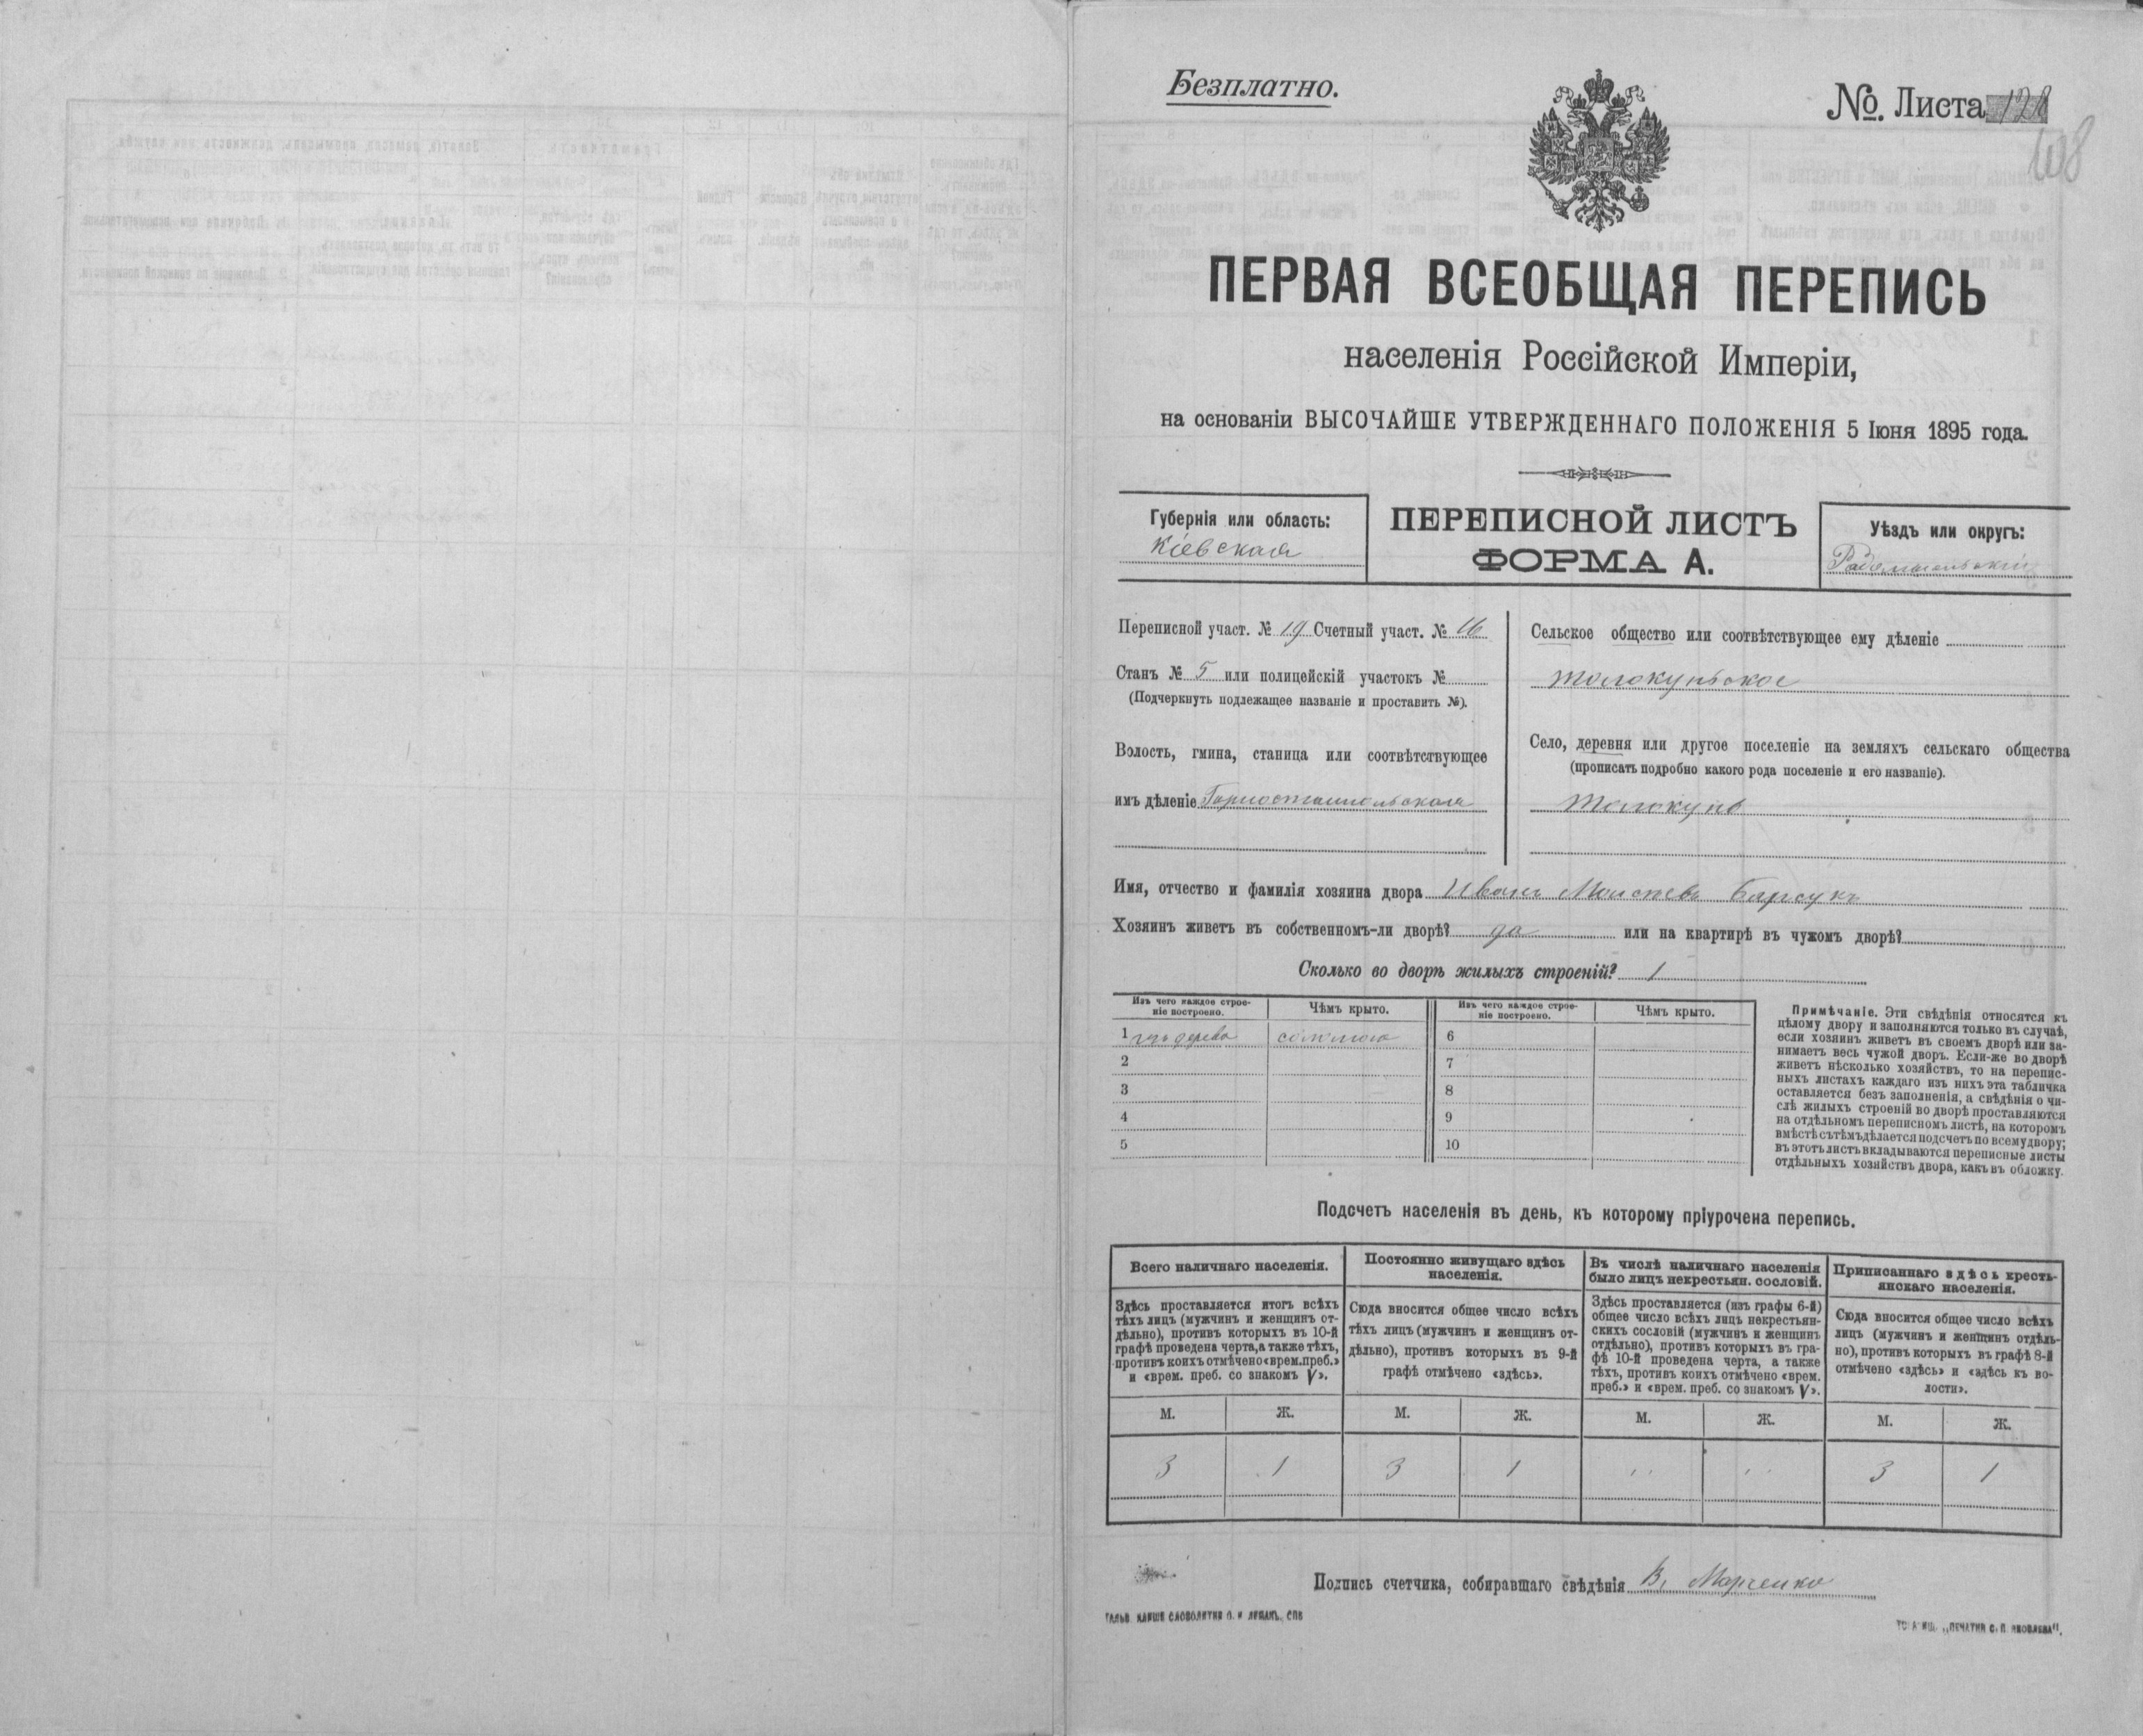 Безплатно.
№. Листа 128
108
ПЕРВАЯ ВСЕОБЩАЯ ПЕРЕПИСЬ
населенія Россійской Имперіи,
на основаніи ВЫСОЧАЙШЕ УТВЕРЖДЕННАГО ПОЛОЖЕНІЯ 5 Іюня 1895 года.
Губернія или область:
Кіевская
ПЕРЕПИСНОЙ ЛИСТЪ
ФОРМА А.
Уѣздъ или округъ:
Радомысльскій
Переписной участ. № 19 Счетный участ. № 16
Станъ № 5 или полицейскій участокъ №
(Подчеркнуть подлежащее названіе и проставить №).
Волость, гмина, станица или соотвѣтствующее
имъ дѣленіе Горностайпольская
Сельское общество или соотвѣтствующее ему дѣленіе
Толокуньское
Село, деревня или другое поселеніе на земляхъ сельскаго общества
(прописать подробно какого рода поселеніе и его названіе).
Толокунь
Имя, отчество и фамилія хозяина двора Иванъ Моисѣевъ Барсукъ
Хозяинъ живетъ въ собственномъ-ли дворѣ? да или на квартирѣ въ чужомъ дворѣ?
Сколько во дворѣ жилыхъ строеній? 1
Изъ чего каждое строе-
ніе построено.
Чѣмъ крыто.
Изъ чего каждое строе-
ніе построено.
Чѣмъ крыто.
1 изъ дерева солома 6
2 7
3 8
4 9
5 10
Примѣчаніе. Эти свѣдѣнія относятся къ
цѣлому двору и заполняются только въ случаѣ,
если хозяинъ живетъ въ своемъ дворѣ или за-
нимаетъ весь чужой дворъ. Если-же во дворѣ
живетъ нѣсколько хозяйствъ, то на перепис-
ныхъ листахъ каждаго изъ нихъ эта табличка
оставляется безъ заполненія, а свѣдѣнія о чи-
слѣ жилыхъ строеній во дворѣ проставляются
на отдѣльномъ переписномъ листѣ, на которомъ
вмѣстѣ съ тѣмъ дѣлается подсчетъ по всему двору;
въ этотъ листъ вкладываются переписные листы
отдѣльныхъ хозяйствъ двора, какъ въ обложку.
Подсчетъ населенія въ день, къ которому пріурочена перепись.
Всего наличнаго населенія.
Здѣсь проставляется итогъ всѣхъ
тѣхъ лицъ (мужчинъ и женщинъ от-
дѣльно), противъ которыхъ въ 10-й
графѣ проведена черта, а также тѣхъ,
противъ коихъ отмѣчено «врем. преб.»
и «врем. преб. со знакомъ V».
Постоянно живущаго здѣсь
населенія.
Сюда вносится общее число всѣхъ
тѣхъ лицъ (мужчинъ и женщинъ от-
дѣльно), противъ которыхъ въ 9-й
графѣ отмѣчено «здѣсь».
Въ числѣ наличнаго населенія
было лицъ некрестьян. сословій.
Здѣсь проставляется (изъ графы 6-й)
общее число всѣхъ лицъ некрестьян-
скихъ сословій (мужчинъ и женщинъ
отдѣльно), противъ которыхъ въ гра-
фѣ 10-й проведена черта, а также
тѣхъ, противъ коихъ отмѣчено «врем.
преб.» и «врем. преб. со знакомъ V».
Приписаннаго здѣсь кресть-
янскаго населенія.
Сюда вносится общее число всѣхъ
лицъ (мужчинъ и женщинъ отдѣль-
но), противъ которыхъ въ графѣ 8-й
отмѣчено «здѣсь» и «здѣсь къ во-
лости».
М. Ж. М. Ж. М. Ж. М. Ж.
3 1 3 1 ․․ ․․ 3 1
Подпись счетчика, собиравшаго свѣдѣнія В. Марченко